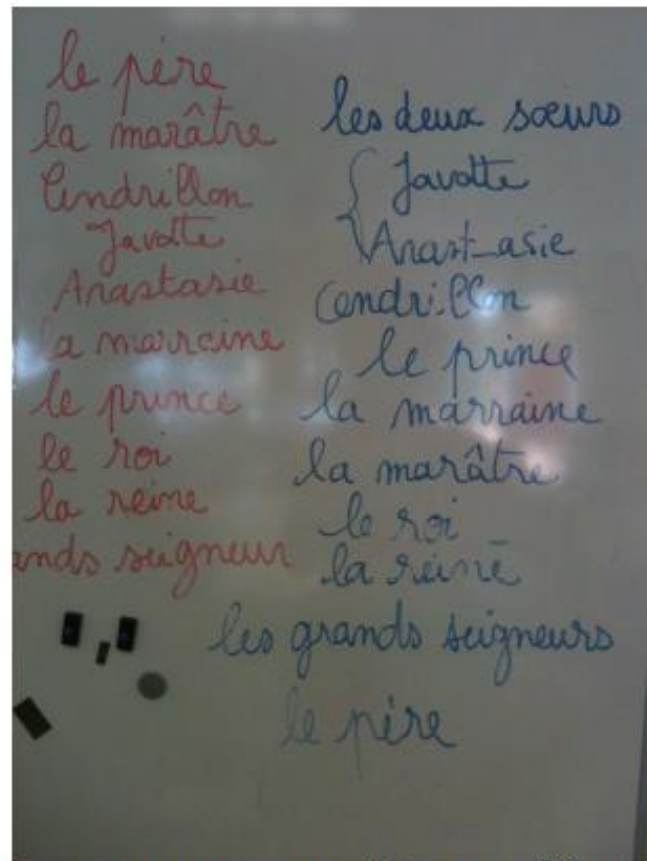 le père
la marâtre
Cendrillon
Javotte
Anastasie
a marraine
le prince
le roi
la reine
ands seigneur
les deux sœurs
Javotte
Anast_asie
Cendrillon
le prince
la marraine
la marâtre
le roi
la reine
les grands seigneurs
le père